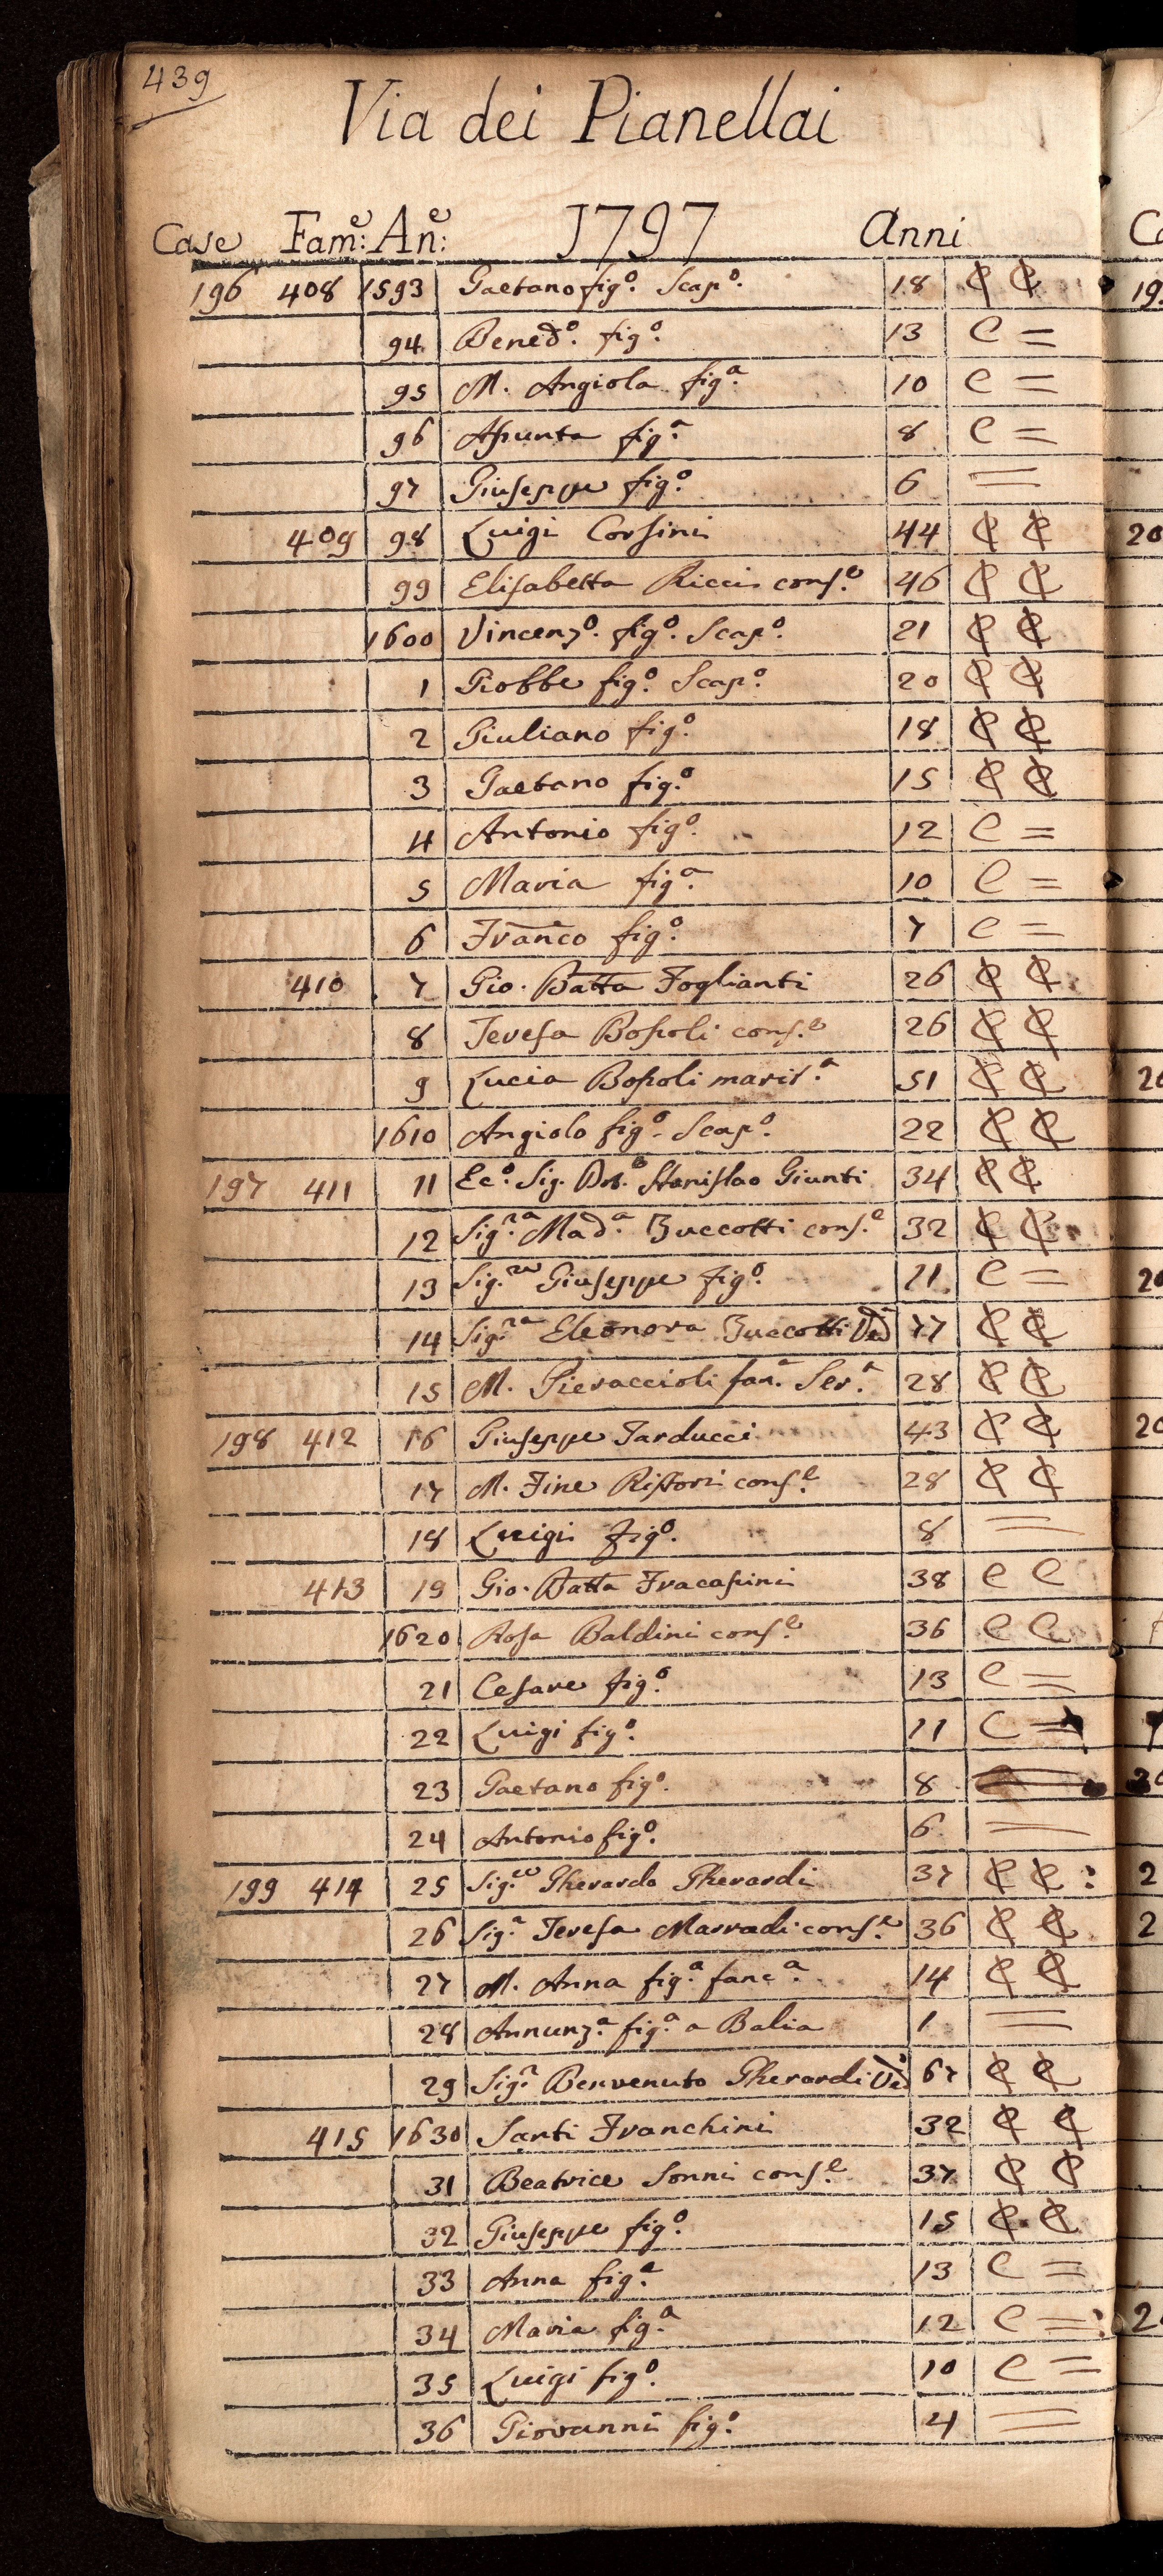 439
Via dei Pianellai
Case Fam:e An:e 1797 Anni
196 408 1593 Gaetano fig.o Scap.o 18 ₵ ₵
94 Bened.o fig.o 13 C =
95 M. Angiola fig.a 10 C =
96 Aſsunta fig.a 8 C =
97 Giuseppe fig.o 6 =
409 98 Luigi Corsini 44 ₵ ₵
99 Elisabetta Ricci cons.e 46 ₵ ₵
1600 Vincenz.o fig.o Scap.o 21 ₵ ₵
1 Giobbe fig.o Scap.o 20 ₵ ₵
2 Giuliano fig.o 18 ₵ ₵
3 Gaetano fig.o 15 ₵ ₵
4 Antonio fig.o 12 C =
5 Maria fig.a 10 C =
6 Franco fig.o 7 C =
410 7 Gio. Batta Foglianti 26 ₵ ₵
8 Teresa Boſsoli cons.e 26 ₵ ₵
9 Lucia Boſsoli marit.a 51 ₵ ₵
1610 Angiolo fig.o Scap.o 22 ₵ ₵
197 411 11 Ec.o Sig. Dot. Stanislao Giunti 34 ₵ ₵
12 Sig.ra Mad.a Buccotti cons.e 32 ₵ ₵
13 Sig.re Giuseppe fig.o 11 C =
14 Sig.ra Eleonora Buccotti Ved 77 ₵ ₵
15 M. Pieraccioli fan.a Ser.a 28 ₵ ₵
198 412 16 Giuseppe Tarducci 43 ₵ ₵
17 M. Fine Ristori cons.e 28 ₵ ₵
18 Luigi fig.o 8 =
413 19 Gio. Batta Fracaſsini 38 C C
1620 Rosa Baldini cons.e 36 C C
21 Cesare fig.o 13 C =
22 Luigi fig.o 11 C =
23 Gaetano fig.o 8 =
24 Antonio fig.o 6 =
199 414 25 Sig.re Gherardo Gherardi 37 ₵ ₵ :
26 Sig.a Teresa Marradi cons.e 36 ₵ ₵
27 M. Anna fig.a fanc.a 14 ₵ ₵
28 Annunz.a fig.a a Balia 1 =
29 Sig.r Benvenuto Gherardi Ved 67 ₵ ₵
415 1630 Santi Franchini 32 ₵ ₵
31 Beatrice Sonni cons.e 37 ₵ ₵
32 Giuseppe fig.o 15 ₵ ₵
33 Anna fig.a 13 C =
34 Maria fig.a 12 C = :
35 Luigi fig.o 10 C =
36 Giovanni fig.o 4 =